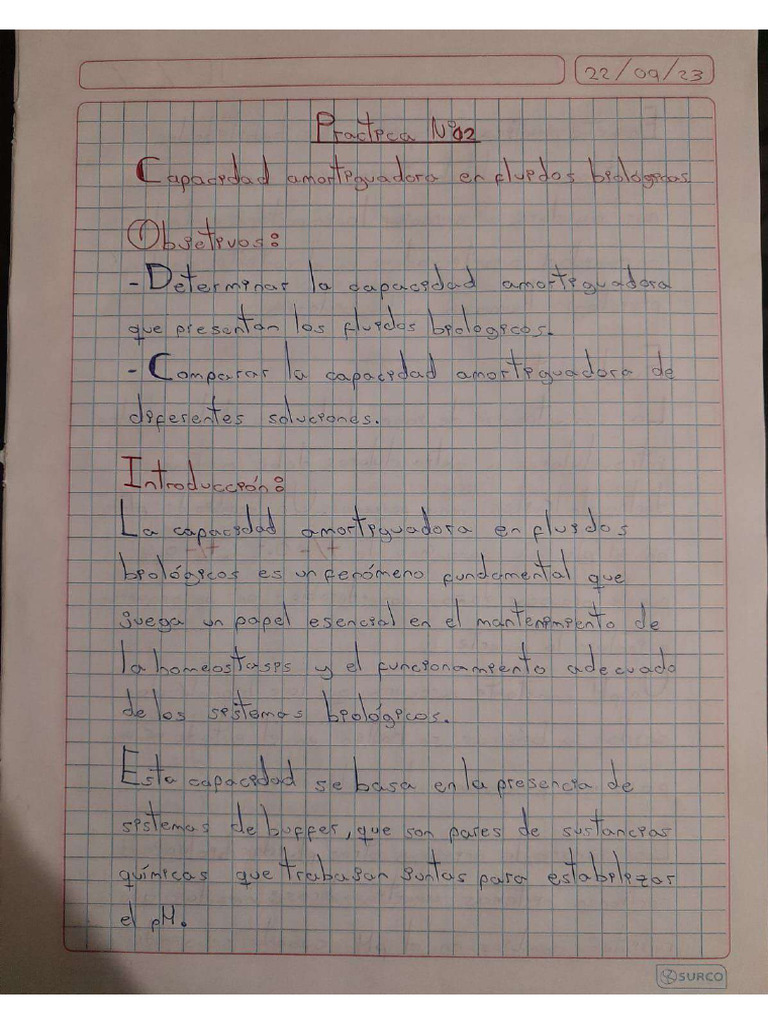 22/09/23
Practica N°02
Capacidad amortiguadora en fluidos biológicos
Objetivos:
-Determinar la capacidad amortiguadora
que presentan los fluidos biologicos.
-Comparar la capacidad amortiguadora de
diferentes soluciones.
Introducción:
La capacidad amortiguadora en fluidos
biológicos es un fenómeno fundamental que
juega un papel esencial en el mantenimiento de
la homeostasis y el funcionamiento adecuado
de los sistemas biológicos.
Esta capacidad se basa en la presencia de
sistemas de buffer, que son pares de sustancias
químicas que trabajan juntas para estabilizar
el pH.
SURCO